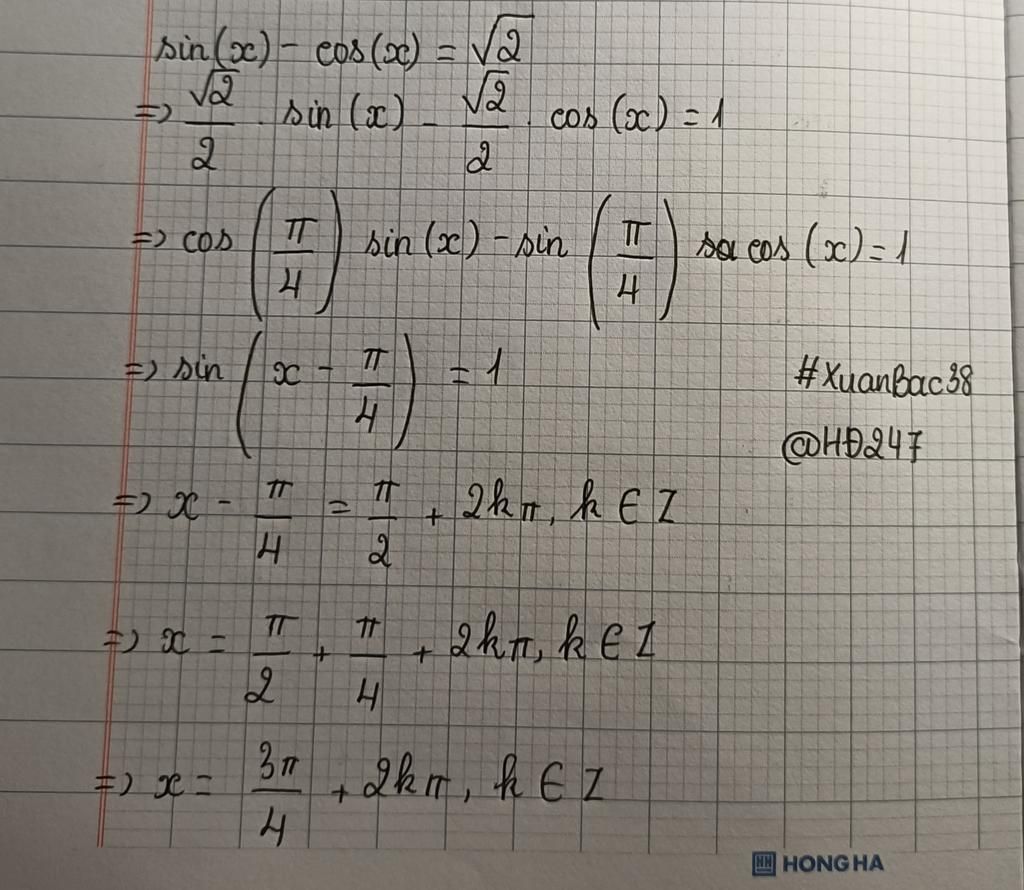 sin(x) - cos(x) = √2
=> √2/2 . sin(x) - √2/2 . cos(x) = 1
=> cos(π/4) sin(x) - sin(π/4) cos(x) = 1
=> sin(x - π/4) = 1
#XuanBac38
@HĐ247
=> x - π/4 = π/2 + 2kπ, k ∈ Z
=> x = π/2 + π/4 + 2kπ, k ∈ Z
=> x = 3π/4 + 2kπ, k ∈ Z
HH HONG HA